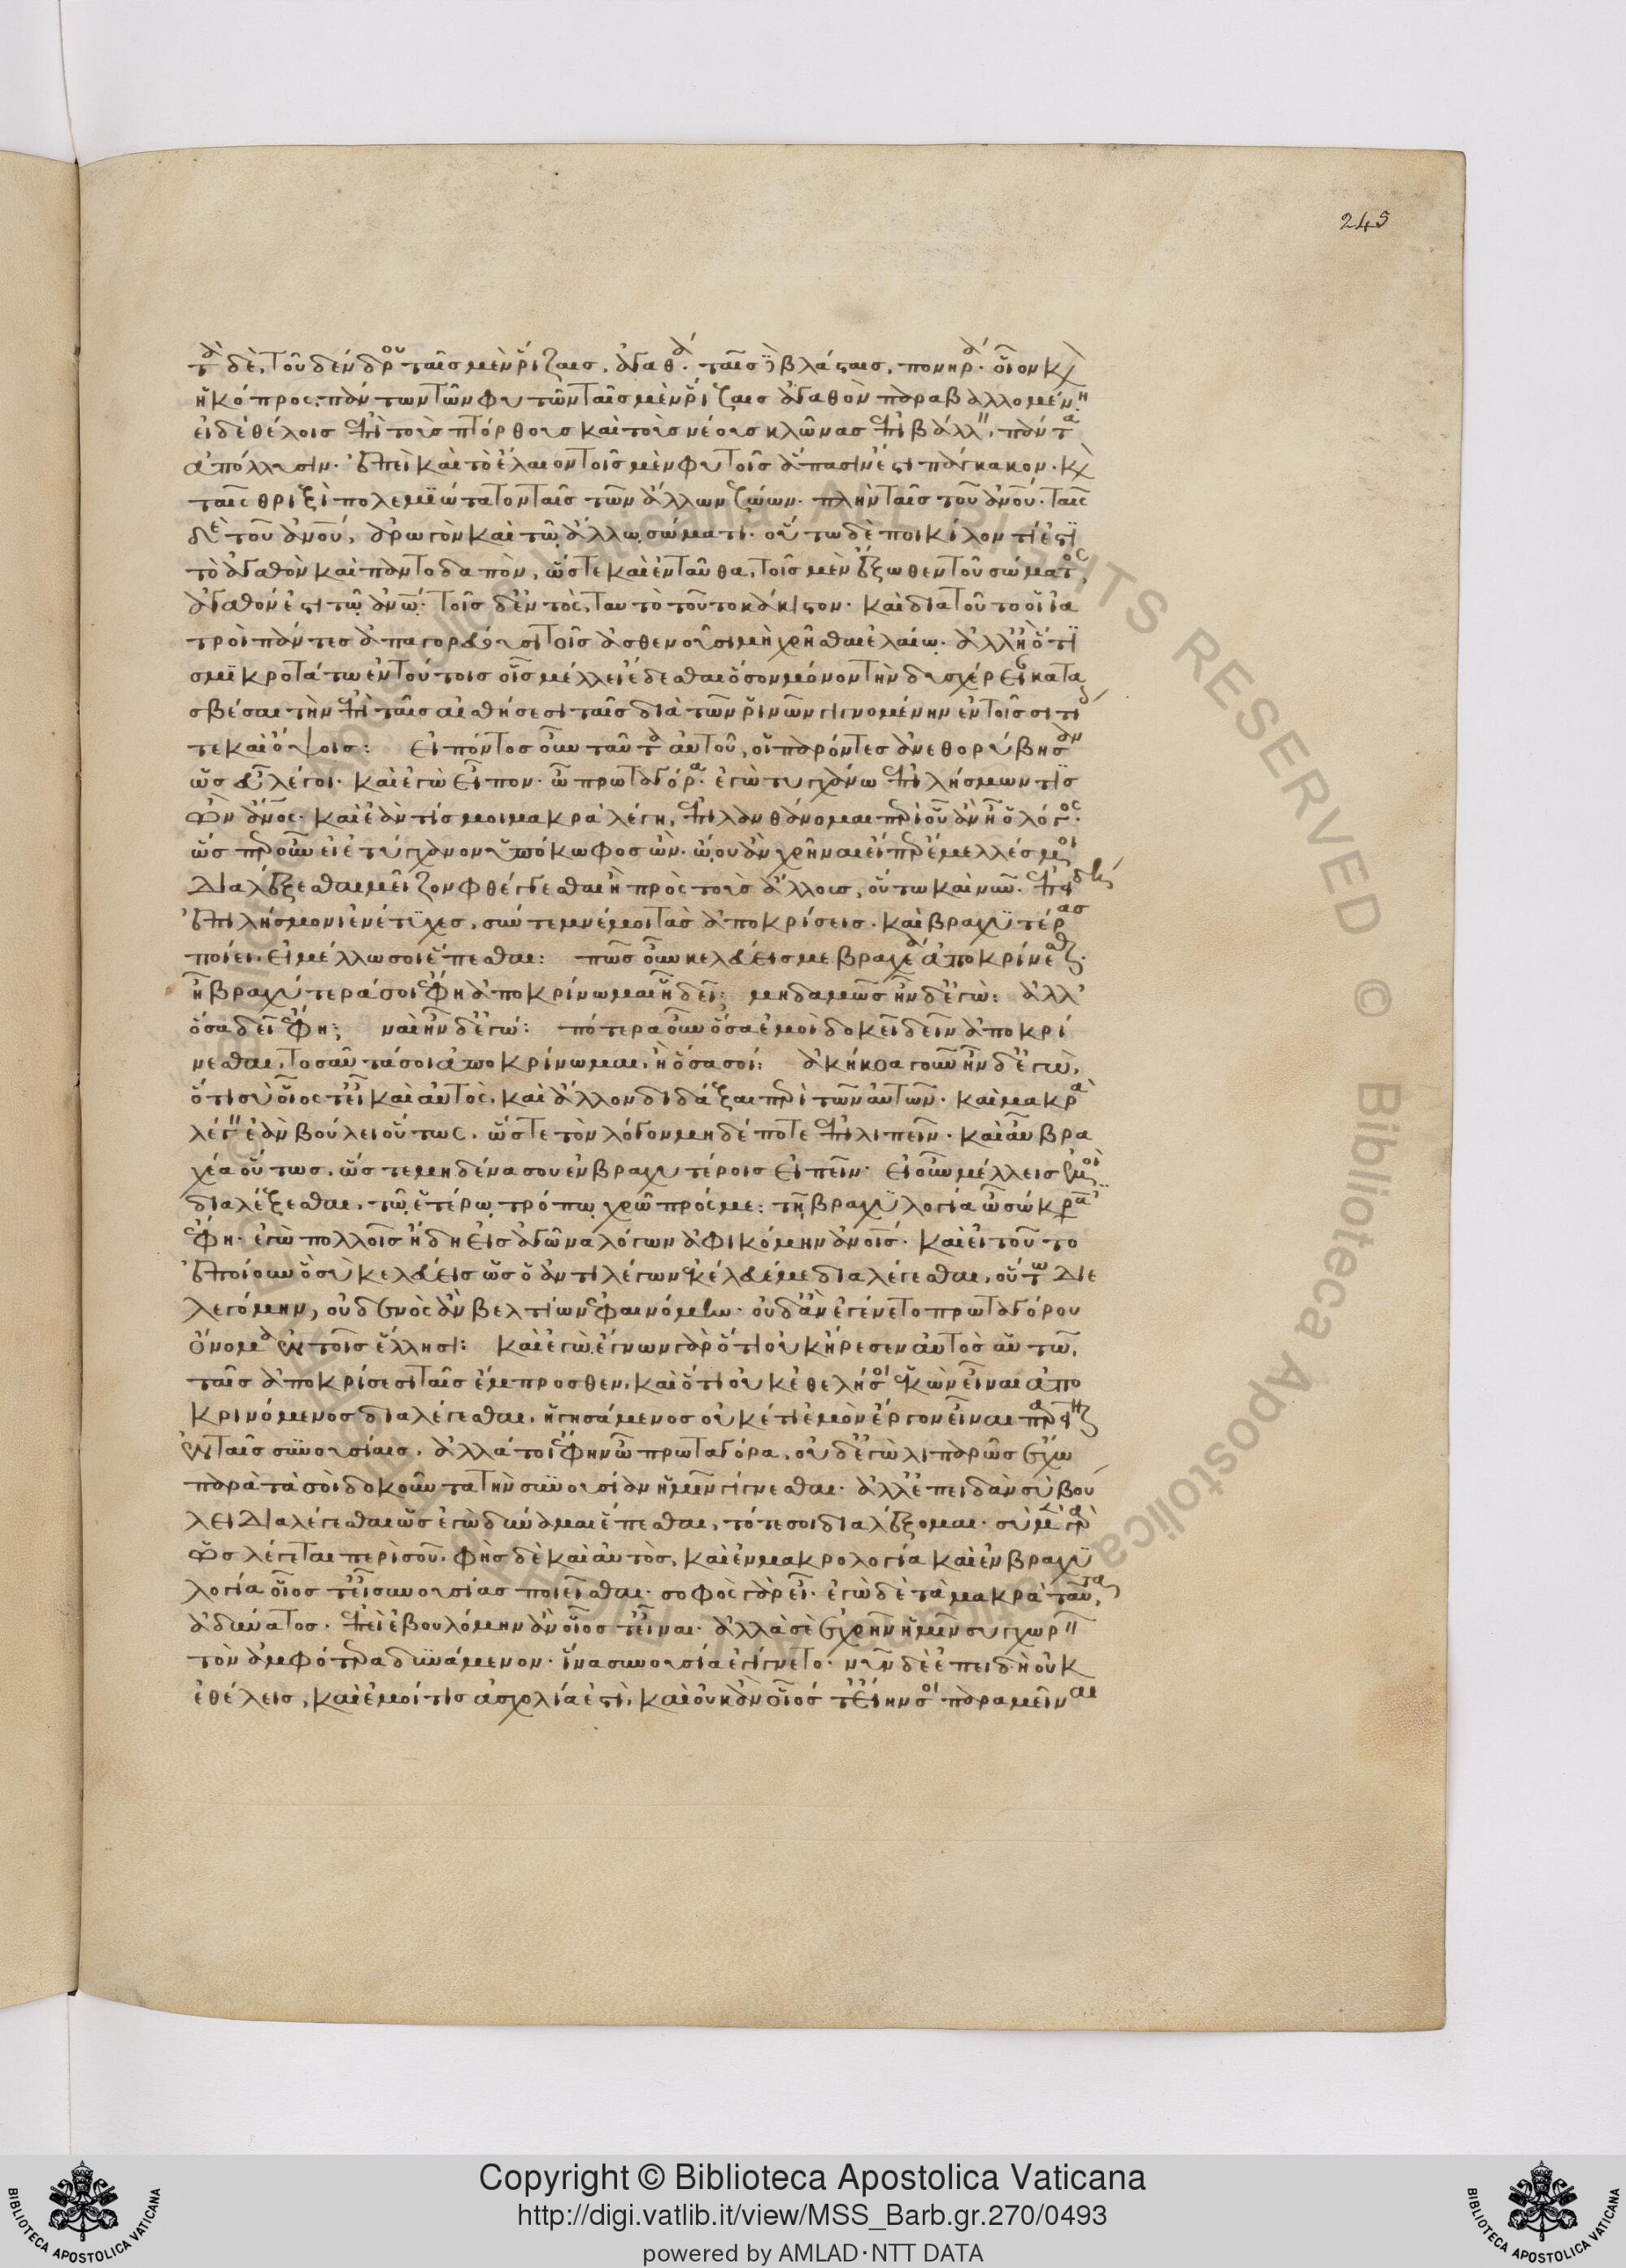 245
τὰ δὲ, τοῦ δένδρου ταῖς μὲν ῥίζαις, ἀγαθά· ταῖς δὲ βλάσταις, πονηρά· οἷον καὶ
ἡ κόπρος, πάντων τῶν φυτῶν ταῖς μὲν ῥίζαις ἀγαθὸν παραβαλλομένη
εἰ δὲ θέλοις ἐπὶ τοὺς πτόρθους καὶ τοὺς νέους κλῶνας ἐπιβάλλειν, πάντα
ἀπόλλυσιν· ἐπεὶ καὶ τὸ ἔλαιον τοῖς μὲν φυτοῖς ἅπασίν ἐστι πάγκακον· καὶ
ταῖς θριξὶ πολεμϊώτατον ταῖς τῶν ἄλλων ζῴων· πλὴν ταῖς τοῦ ἀνοῦ· ταῖς
δὲ τοῦ ἀνοῦ, ἀρωγὸν καὶ τῷ ἄλλῳ σώματι· οὕτω δὲ ποικίλον τί ἐστϊ
τὸ ἀγαθὸν καὶ παντοδαπὸν, ὥστε καὶ ἐνταῦθα, τοῖς μὲν ἔξωθεν τοῦ σώματος,
ἀγαθόν ἐστι τῷ ἀνῷ· τοῖς δ' ἐντὸς, ταυτὸ τοῦτο κάκιστον· καὶ διὰ τοῦτο οἱ ἰα
τροὶ πάντες ἀπαγορεύουσι τοῖς ἀσθενοῦσι μὴ χρῆσθαι ἐλαίῳ· ἀλλ' ἢ ὅτϊ
σμϊκροτάτω ἐν τούτοις οἷς μέλλει ἔδεσθαι ὅσον μόνον τὴν δυσχέρειαν κατα
σβέσαι τὴν ἐπὶ ταῖς αἰσθήσεσι ταῖς διὰ τῶν ῥινῶν γιγνομένην ἐν τοῖς σιτίοις
τε καὶ ὄψοις: εἰπόντος οὖν ταῦτα αὐτοῦ, οἱ παρόντες ἀνεθορύβησαν
ὡς εὖ λέγοι· καὶ ἐγὼ εἶπον· ὦ πρωταγόρα· ἐγὼ τυγχάνω ἐπιλήσμων τϊς
ὢν ἄνος· καὶ ἐάν τίς μοι μακρὰ λέγῃ, ἐπιλανθάνομαι περὶ οὗ ἂν ᾖ ὁ λόγος·
ὥσπερ οὖν εἰ ἐτύγχανον ὑπόκωφος ὤν· ᾤου ἂν χρῆναι εἴπερ ἔμελλές μοι
διαλέξεσθαι μεῖζον φθέγγεσθαι ἢ πρὸς τοὺς ἄλλους, οὕτω καὶ νῦν· ἐπειδὴ
ἐπιλήσμονι ἐνέτϋχες, σύντεμνέ μοι τὰς ἀποκρίσεις· καὶ βραχϋτέρας
ποίει, εἰ μέλλω σοι ἕπεσθαι: πῶς οὖν κελεύεις με βραχέα ἀποκρίνεσθαι·
ἢ βραχύτερά σοι ἔφη ἀποκρίνωμαι ἢ δεῖ; μηδαμῶς ἦν δ' ἐγώ: ἀλλ'
ὅσα δεῖ ἔφη; ναὶ ἦν δ' ἐγώ: πότερα οὖν ὅσα ἐμοὶ δοκεῖ δεῖν ἀποκρί
νεσθαι, τοσαῦτά σοι ἀποκρίνωμαι, ἢ ὅσα σοί: ἀκήκοα γοῦν ἦν δ' ἐγὼ,
ὅτι σὺ οἷός τ' εἶ καὶ αὐτὸς, καὶ ἄλλον διδάξαι περὶ τῶν αὐτῶν· καὶ μακρὰ
λέγειν ἐὰν βούλει οὕτως, ὥστε τὸν λόγον μηδέποτε ἐπιλιπεῖν· καὶ αὖ βρα
χέα οὕτως, ὥστε μηδένα σου ἐν βραχυτέροις εἰπεῖν· εἰ οὖν μέλλεις ἐμοὶ
διαλέξεσθαι, τῷ ἑτέρῳ τρόπῳ χρῶ πρός με: τῇ βραχϋλογία ὦ σώκρατες
ἔφη· ἐγὼ πολλοῖς ἤδη εἰς ἀγῶνα λόγων ἀφικόμην ἀνοις· καὶ εἰ τοῦτο
ἐποίουν ὃ σὺ κελεύεις ὡς ὁ ἀντιλέγων ἐκέλευέ με διαλέγεσθαι, οὕτω διε
λεγόμην, οὐδενὸς ἂν βελτίων ἐφαινόμην· οὐδ' ἂν ἐγένετο πρωταγόρου
ὄνομα ἐν τοῖς ἕλλησι: καὶ ἐγὼ ἔγνων γὰρ ὅτι οὐκ ἤρεσεν αὐτὸς αὑτῷ,
ταῖς ἀποκρίσεσι ταῖς ἔμπροσθεν, καὶ ὅτι οὐκ ἐθελήσοι ἑκὼν εἶναι ἀπο
κρινόμενος διαλέγεσθαι, ἡγησάμενος οὐκέτι ἐμὸν ἔργον εἶναι παρεῖναι
ἐν ταῖς συνουσίαις, ἀλλά τοι ἔφην ὦ πρωταγόρα, οὐδ' ἐγὼ λιπαρῶς ἔχω
παρὰ τὰ σοὶ δοκοῦντα τὴν συνουσίαν ἡμῖν γίγνεσθαι· ἀλλ' ἐπειδὰν σὺ βού
λει διαλέγεσθαι ὡς ἐγὼ δύναμαι ἕπεσθαι, τότε σοι διαλέξομαι· σὺ μὲν γὰρ
ὡς λέγεται περὶ σοῦ, φῂς δὲ καὶ αὐτὸς, καὶ ἐν μακρολογία καὶ ἐν βραχϋ
λογία οἷός τ' εἶ συνουσίας ποιεῖσθαι· σοφὸς γὰρ εἶ· ἐγὼ δὲ τὰ μακρὰ ταῦτα,
ἀδύνατος· ἐπεὶ ἐβουλόμην ἂν οἷός τ' εἶναι· ἀλλὰ σὲ ἐχρῆν ἡμῖν συγχωρεῖν
τὸν ἀμφότερα δυνάμενον· ἵνα συνουσία ἐγίγνετο· νῦν δὲ ἐπειδὴ οὐκ
ἐθέλεις, καὶ ἐμοί τις ἀσχολία ἐστὶ, καὶ οὐκ ἂν οἷός τ' εἴην σοι παραμεῖναι
Copyright © Biblioteca Apostolica Vaticana
http://digi.vatlib.it/view/MSS_Barb.gr.270/0493
powered by AMLAD·NTT DATA
BIBLIOTECA APOSTOLICA VATICANA
BIBLIOTECA APOSTOLICA VATICANA